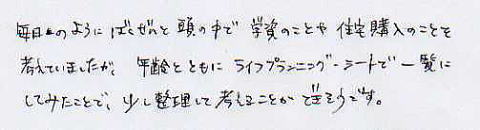 毎日のように ばくぜんと 頭の中で 学資のことや 住宅購入のことを
考えていましたが、年齢とともに ライフプランニング・シートで 一覧に
してみたことで、少し整理して 考えることが できそうです。